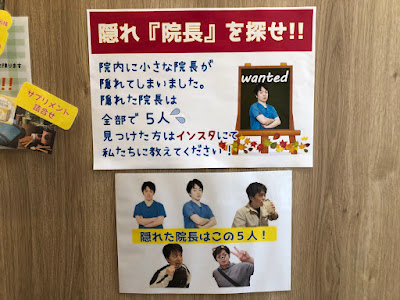 隠れ『院長』を探せ!!
院内に小さな院長が
隠れてしまいました。
隠れた院長は
全部で5人
見つけた方はインスタにて
私たちに教えてください!
wanted
サプリメント
詰合せ
隠れた院長はこの5人!